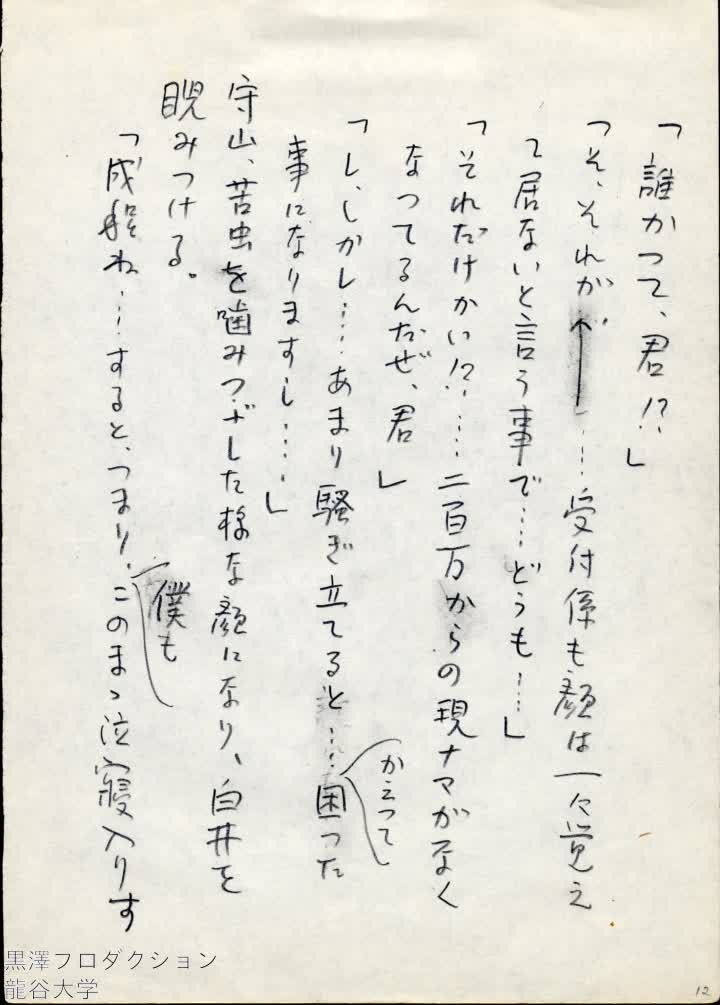 「誰かつて、君!?」
「そ、それが……受付係も顔は一々覚え
て居ないと言う事で……どうも……」
「それだけかい!?……二百万からの現ナマがなく
なつてるんだぜ、君」
「し、しかし……あまり騒ぎ立てると……困った
かえつて
事になりますし……」
守山、苦虫を噛みつぶした様な顔になり、白井を
睨みつける。
「成程ね……すると、つまり、このまゝ泣寝入りす
僕も
黒澤プロダクション
龍谷大学
12